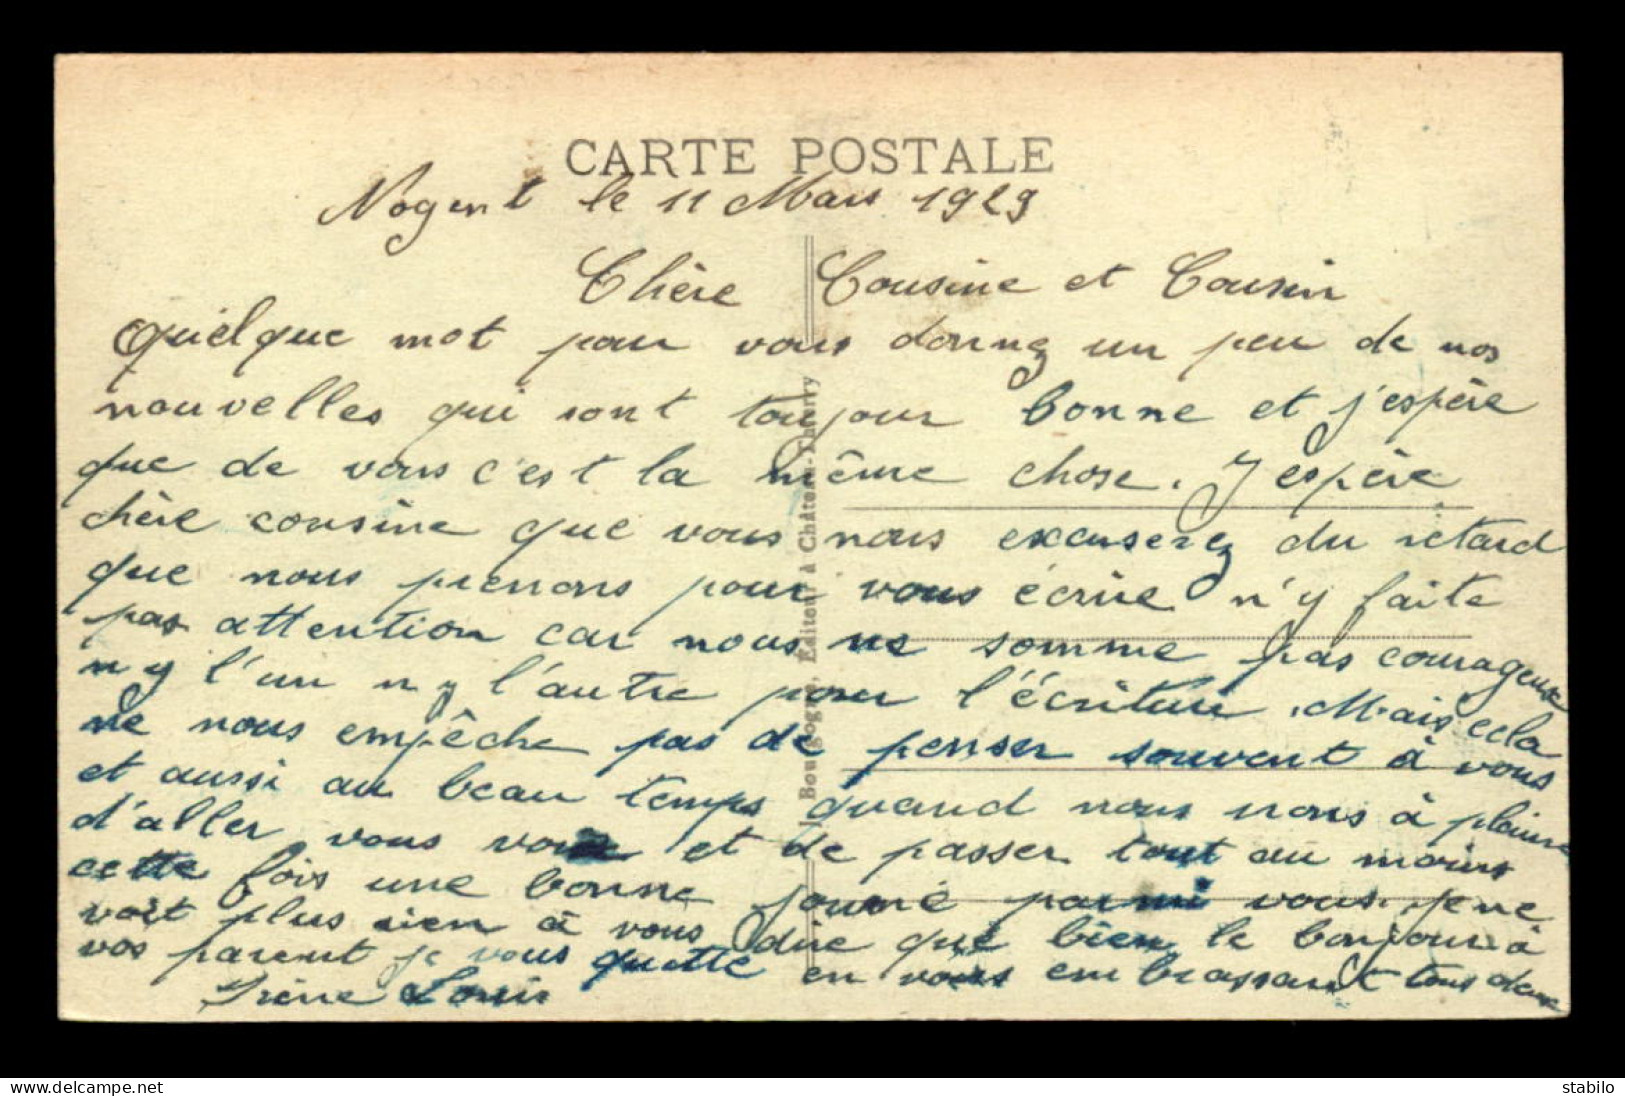 CARTE POSTALE
Nogent le 11 Mars 1929
Chère Cousine et Cousin
Quelque mot pour vous donnez un peu de nos
nouvelles qui sont toujour bonne et j'espère
que de vous c'est la même chose. J'espère
chère cousine que vous nous excuserez du retard
que nous prenons pour vous écrire n'y faite
pas attention car nous ne somme pas courageux
n'y l'un n'y l'autre pour l'écriture. Mais cela
ne nous empêche pas de penser souvent à vous
et aussi au beau temps quand nous irons à plaine
d'aller vous voir et de passer tout au moins
cette fois une bonne journé parmi vous. je ne
voit plus rien à vous dire que bien le bonjour à
vos parent je vous quitte en vous embrassant tous deux
Irène Louis
J. Bourgogne, Editeur à Château-Thierry
delcampe.net
stabilo